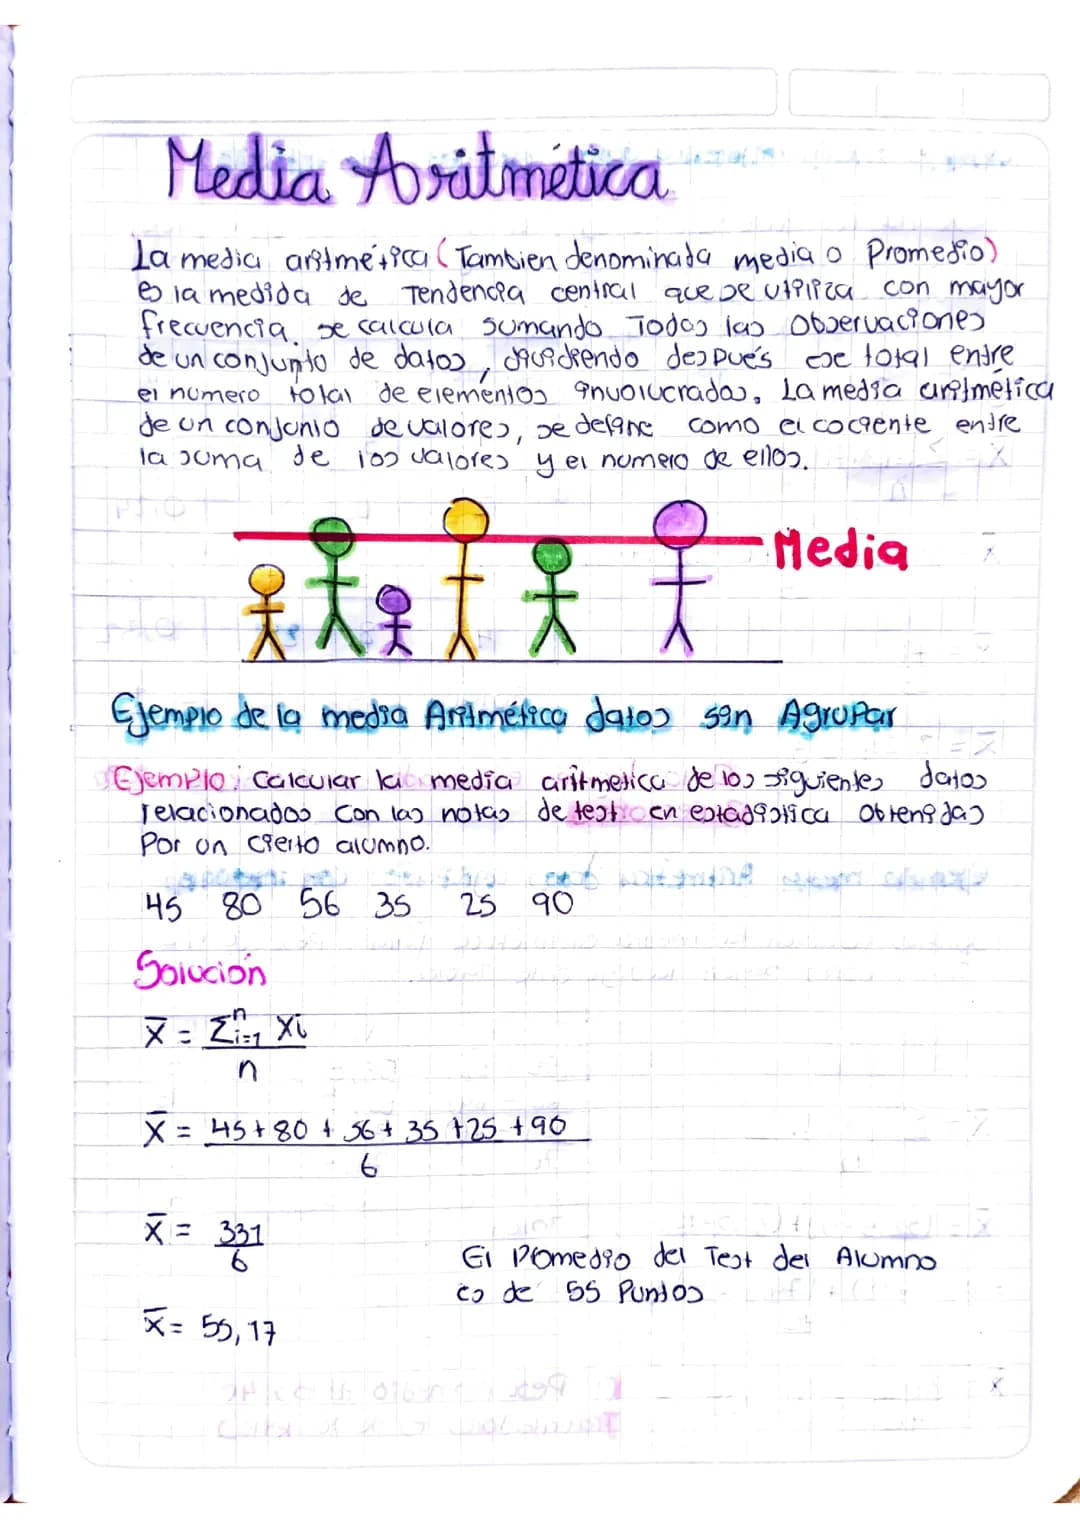 Media Aritmética
La media aritmética (Tambien denominada media o Promedio)
es la medida de Tendencia central que se utiliza con mayor
frecuencia. se calcula sumando Todas las Observaciones
de un conjunto de datos, dividiendo después ese total entre
el numero total de elementos involucrados. La media aritmética
de un conjunto de valores, se define como el cociente entre
la suma de los valores y el numero de ellos.
Media
Ejemplo de la media Aritmética datos sin Agrupar
Ejemplo: Calcular la media aritmetica de los siguientes datos
relacionados con las notas de test en estadistica Obtenidas
Por un cierto alumno.
45 80 56 35 25 90
Solución
x̄ = Σⁿᵢ₌₁ xi
n
x̄ = 45+80+56+35+25+90
6
x̄ = 331
6
El Promedio del Test del Alumno
es de 55 Puntos
x̄ = 55,17